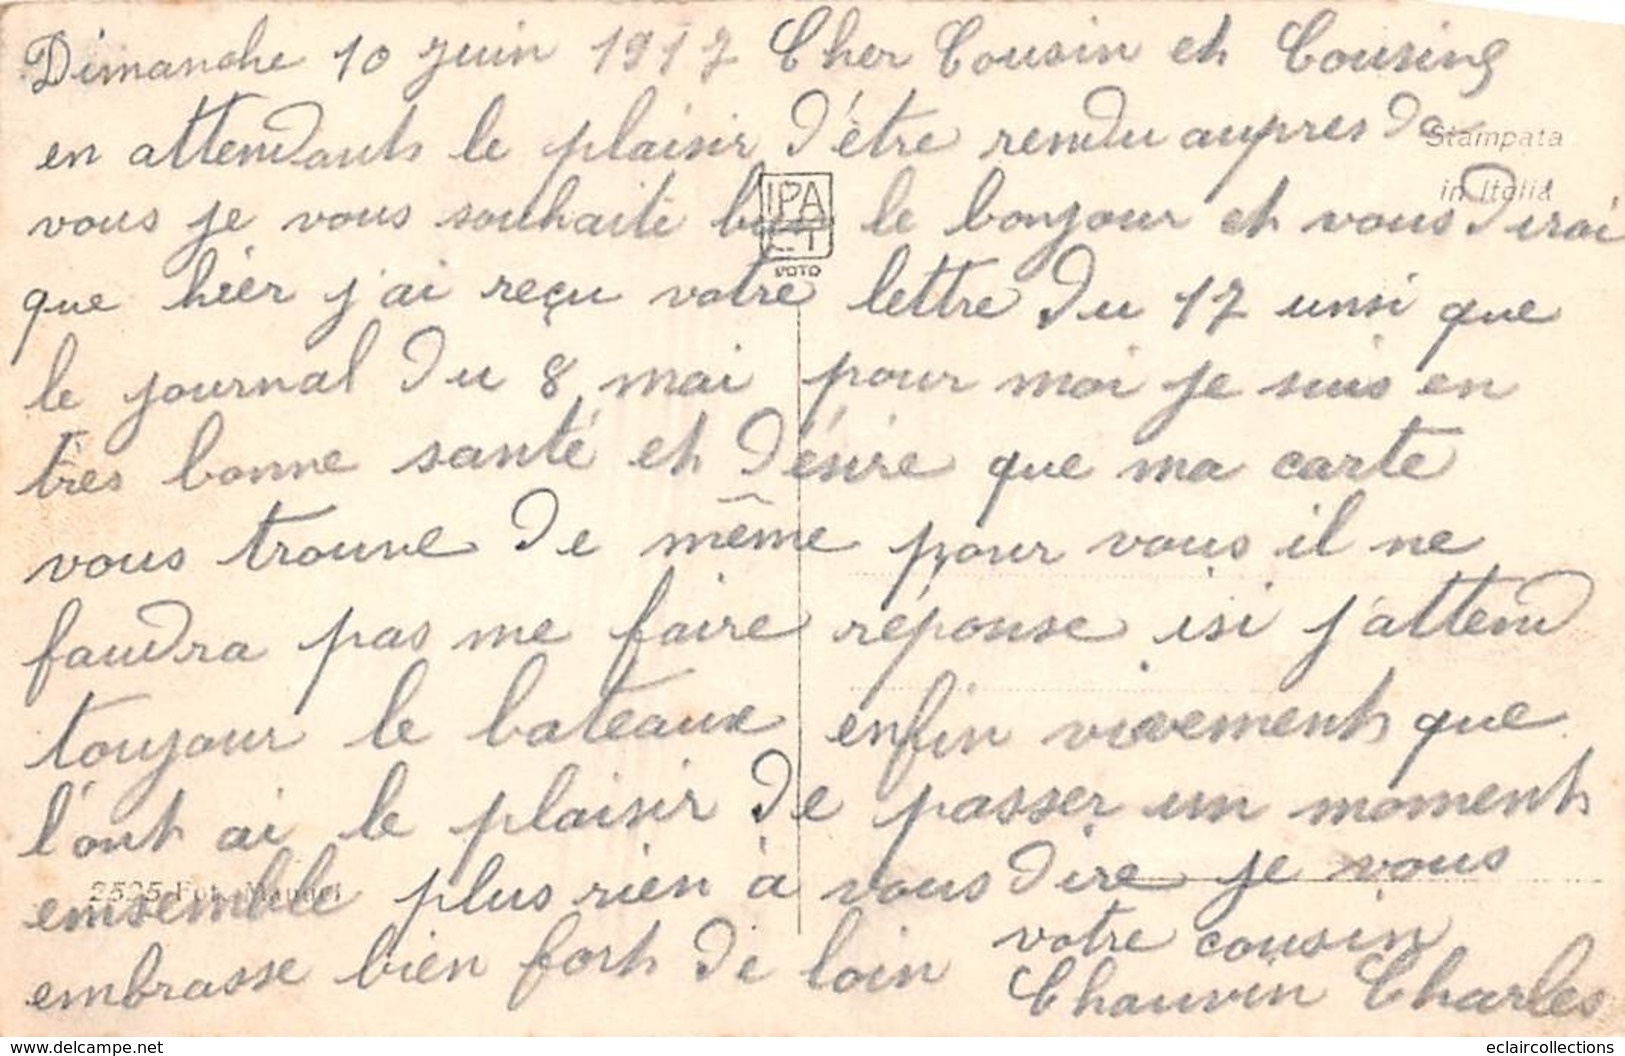 Dimanche 10 juin 1917 Cher Cousin et Cousine
en attendant le plaisir d'être rendu aupres de
Stampata
in Italia
vous je vous souhaite bien le bonjour et vous dirai
IPA
CT
FOTO
que hier j'ai reçu votre lettre du 17 unsi que
le journal du 8 mai pour moi je suis en
très bonne santé et désire que ma carte
vous trouve de même pour vous il ne
faudra pas me faire réponse isi j'attend
toujour le bateaux enfin vivement que
l'ont ai le plaisir de passer un moment
2525 Fot.
ensemble plus rien à vous dire je vous
embrasse bien fort de loin votre cousin
Chauvin Charles
www.delcampe.net
eclaircollections